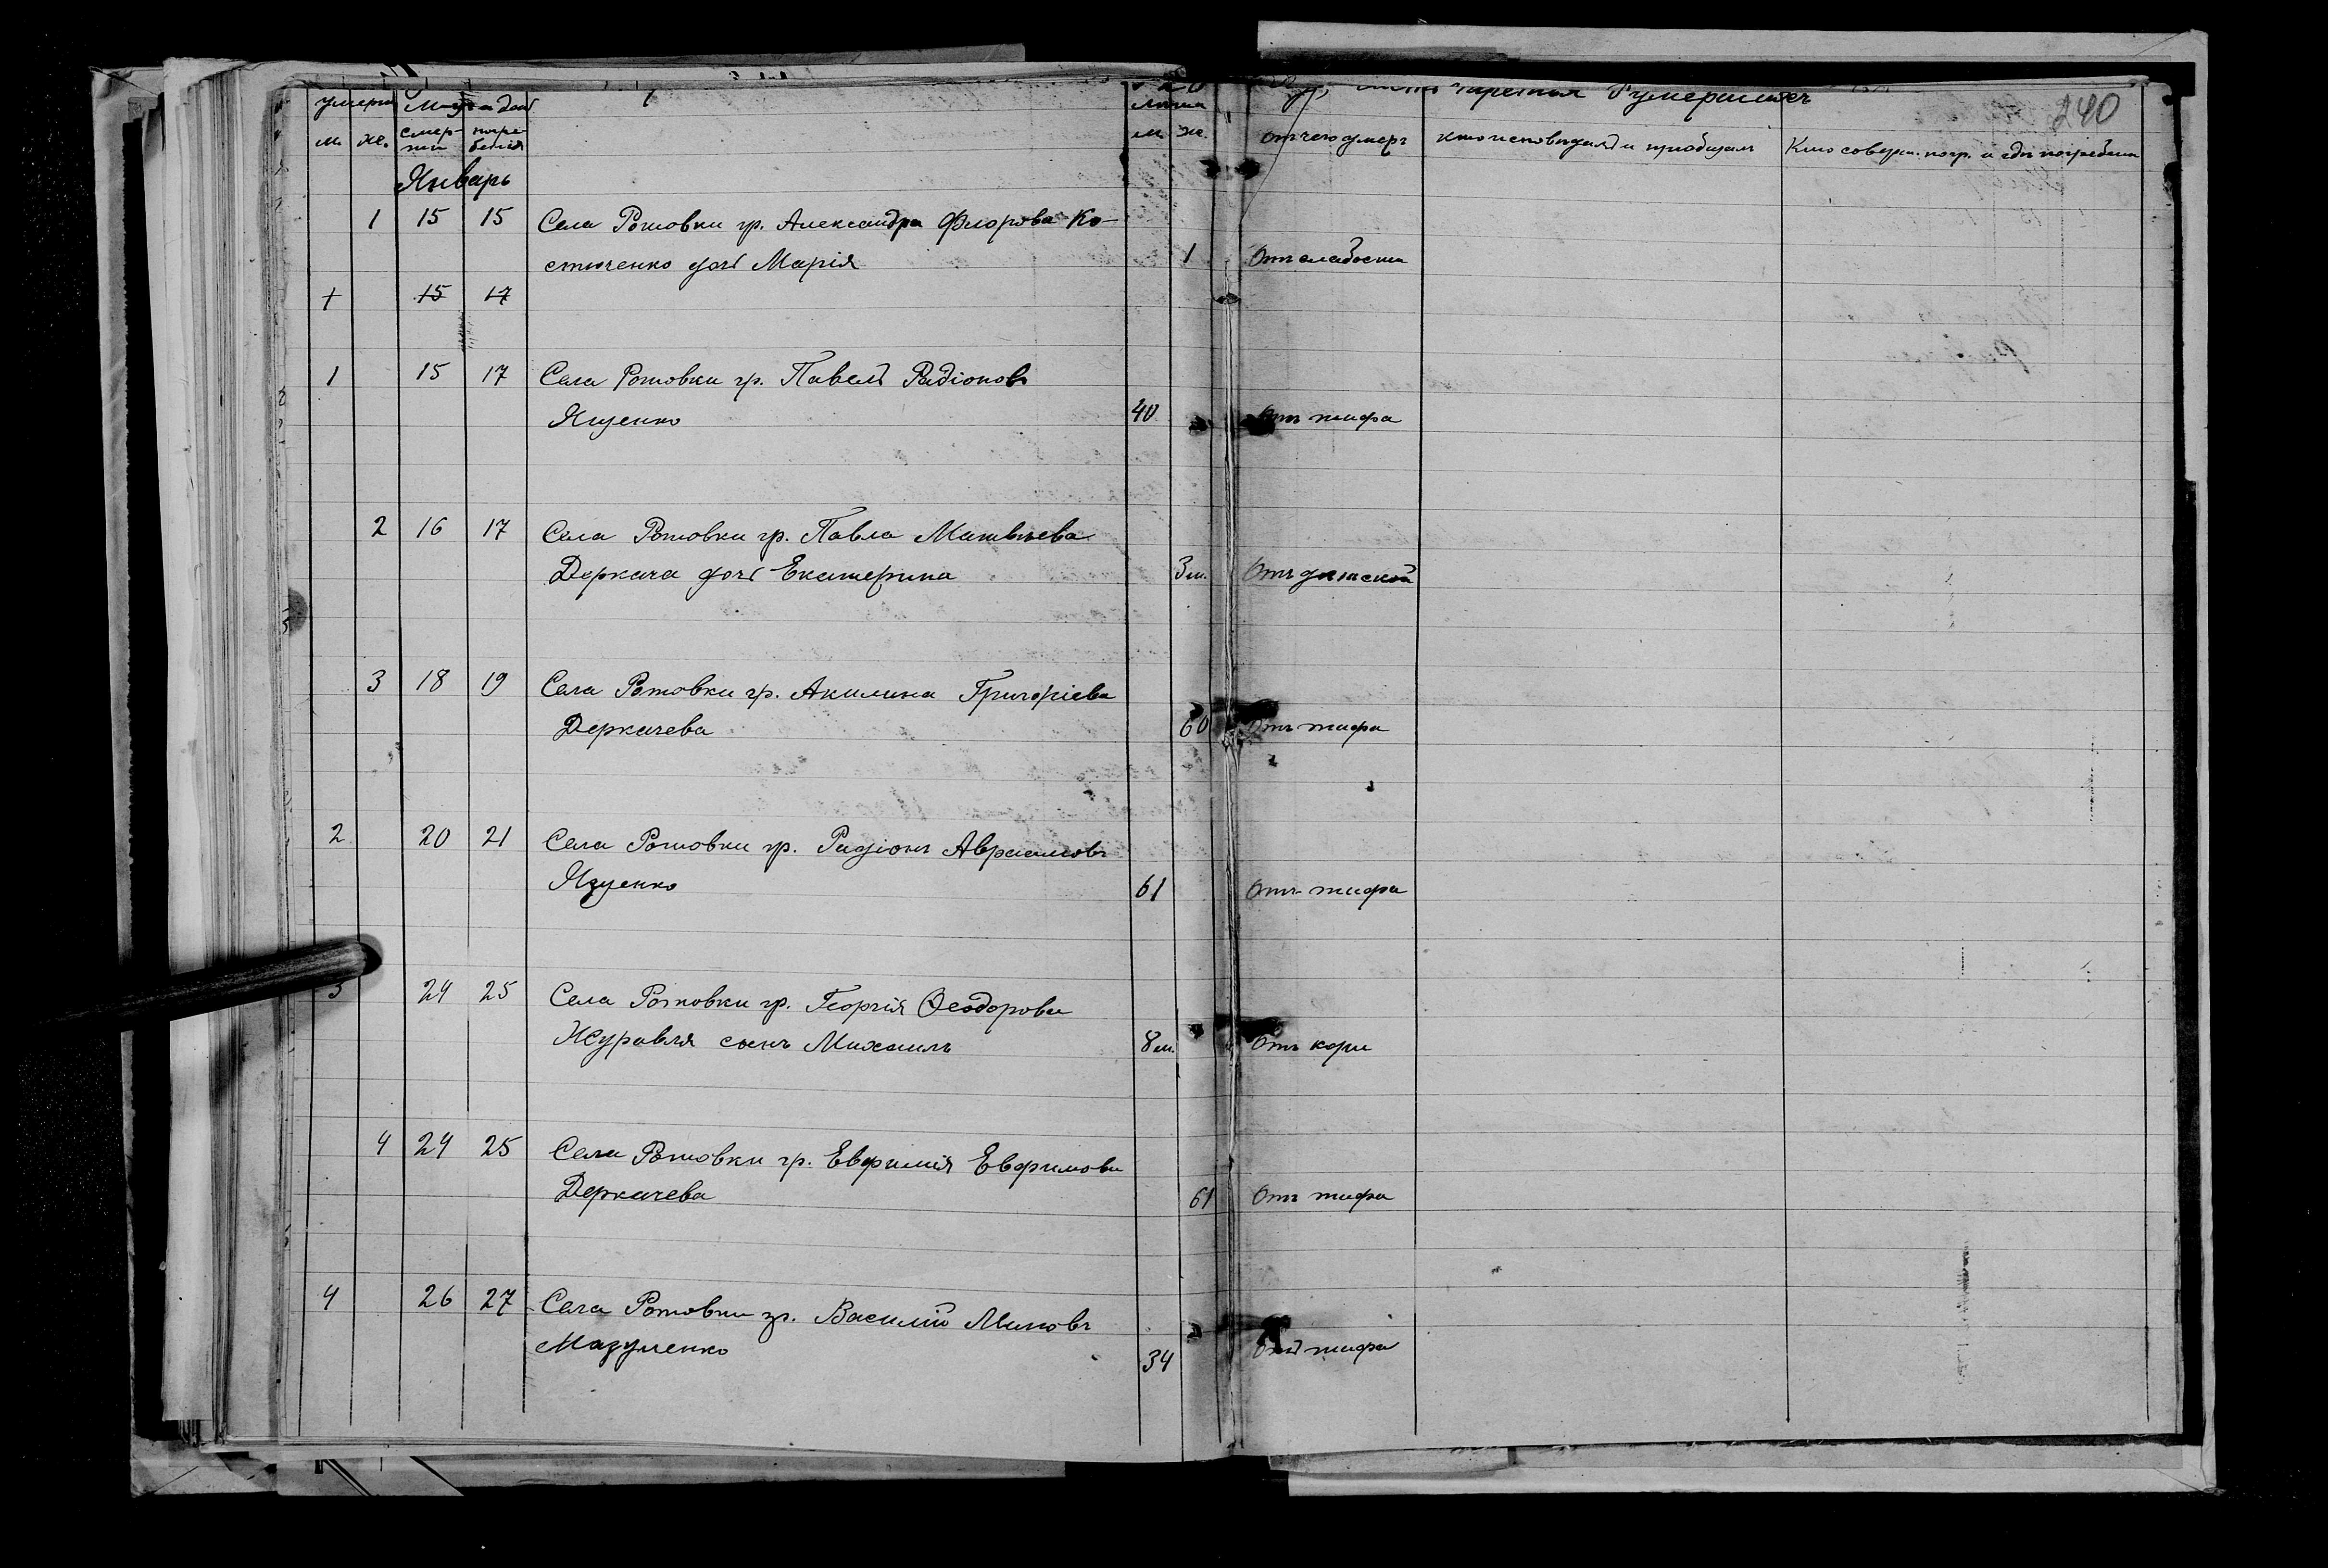 умерш. М-ца и дни Лѣта третья о умершихъ 240
м. ж. смер-ти погре-бенія м. ж. отъ чего умеръ кто исповѣдалъ и пріобщалъ Кто соверш. погр. и гдѣ погребены
Январь
1 15 15 Села Ротовки гр. Александра Флорова Ко-
стюченко дочь Марія 1 Отъ слабости
1 15 17
1 15 17 Села Ротовки гр. Павелъ Радіоновъ
Яценко 40 Отъ тифа
2 16 17 Села Ротовки гр. Павла Матвѣева
Деркача дочь Екатерина 3 м. Отъ дѣтской
3 18 19 Села Ротовки гр. Акилина Григоріева
Деркачева 60 Отъ тифа
2 20 21 Села Ротовки гр. Радіонъ Авраамовъ
Яценко 61 Отъ тифа
3 24 25 Села Ротовки гр. Георгія Ѳеодорова
Журавля сынъ Михаилъ 8 м. Отъ кори
4 24 25 Села Ротовки гр. Евфимія Евфимова
Деркачева 61 Отъ тифа
4 26 27 Села Ротовки гр. Василій Миновъ
Мазуленко 34 Отъ тифа